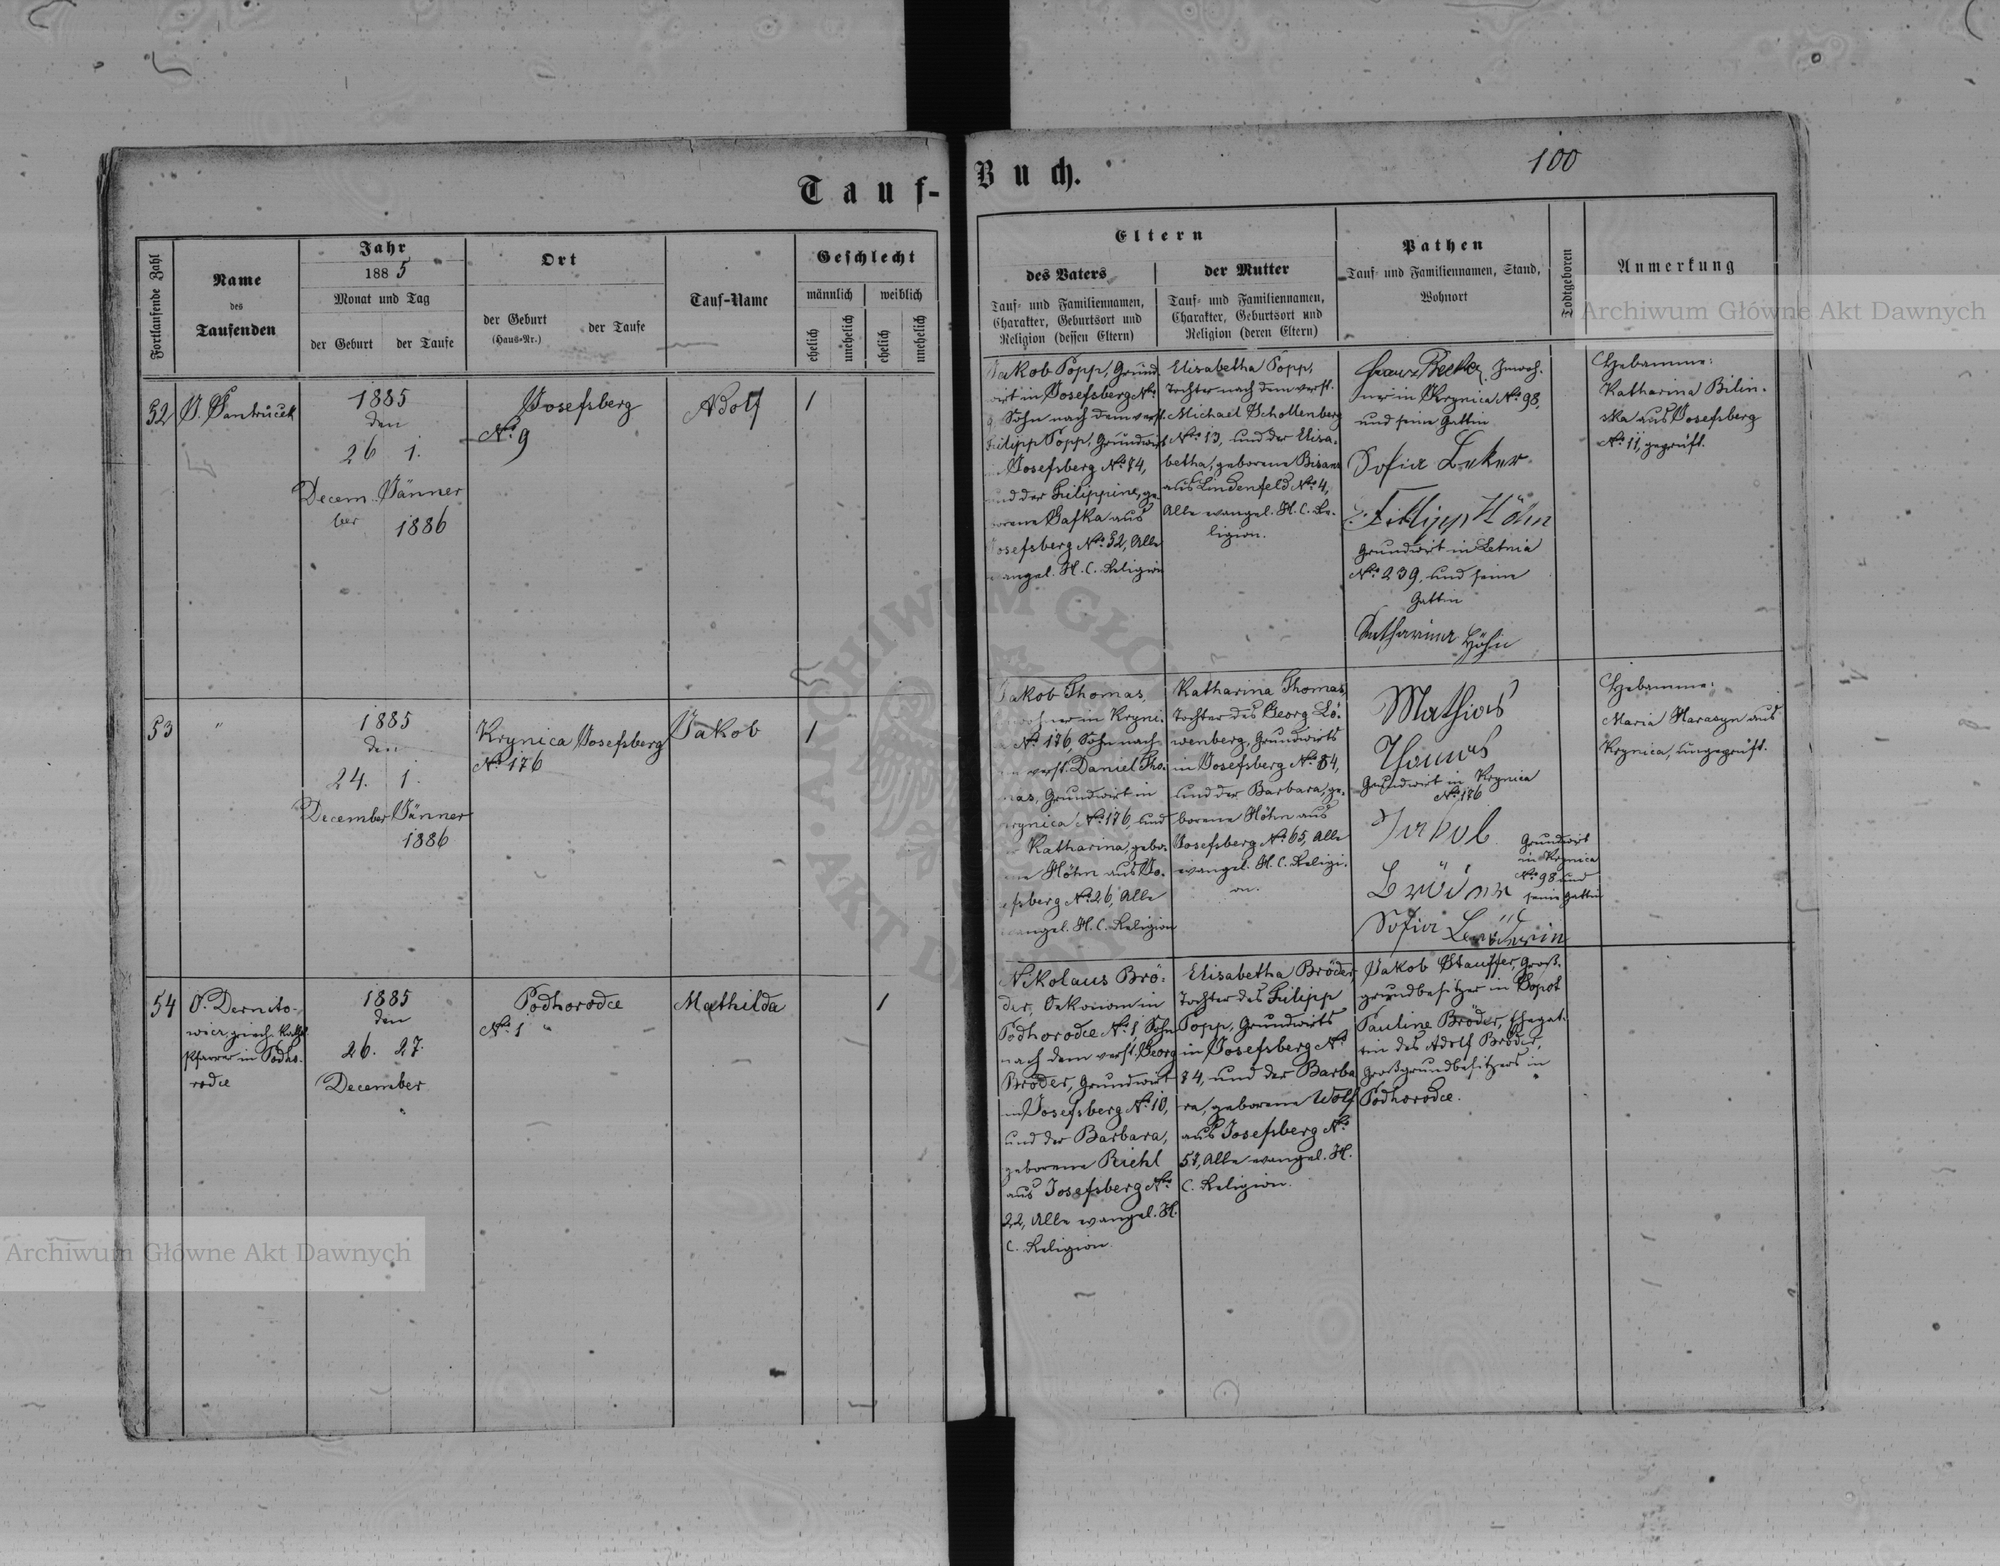 100
Tauf-Buch.
Fortlaufende Zahl
Name
des
Taufenden
Jahr
1885
Monat und Tag
der Geburt
der Taufe
Ort
der Geburt
(Haus-Nr.)
der Taufe
Tauf-Name
Geschlecht
männlich
weiblich
ehelich
unehelich
ehelich
unehelich
Eltern
des Vaters
Tauf- und Familiennamen,
Charakter, Geburtsort und
Religion (dessen Eltern)
der Mutter
Tauf- und Familiennamen,
Charakter, Geburtsort und
Religion (deren Eltern)
Pathen
Tauf- und Familiennamen, Stand,
Wohnort
Todtgeboren
Anmerkung
52
J. Jantrucek
1885
den
26 1.
Decem- Jänner
ber
1886
Josefsberg
No. 9
Adolf
1
Jakob Popp, Grund-
wirt in Josefsberg No.
9, Sohn nach dem verst.
Filipp Popp, Grundwirt
in Josefsberg No. 74,
und der Filippine, ge-
borene Gafka aus
Josefsberg No. 52, Alle
evangel. H. C. Religion
Elisabetha Popp,
Tochter nach dem verst.
Michael Schollenberg
No. 13, und der Elisa-
betha, geborene Bisanz
aus Lindenfeld No. 4,
Alle evangel. H. C. Re-
ligion.
Inwoh-
ner in Krynica No. 98,
und seine Gattin
Sofia Beker
Filipp Höhn
Grundwirt in Letnia
No. 239, und seine
Gattin
Katharina Höhn
Hebamme:
Katharina Bilin-
ska aus Josefsberg
No. 11, geprüft.
53
"
1885
den
24. 1.
December Jänner
1886
Krynica Josefsberg
No. 176
Jakob
1
Jakob Thomas,
Inwohner in Kryni-
ca No. 176, Sohn nach
dem verst. Daniel Tho-
mas, Grundwirt in
Krynica No. 176, und
Katharina, gebo-
rene Höhn aus Jo-
sefsberg No. 26, Alle
evangel. H. C. Religion
Katharina Thomas,
Tochter des Georg Lö-
wenberg, Grundwirts
in Josefsberg No. 84,
und der Barbara, ge-
borene Höhn aus
Josefsberg No. 65, Alle
evangel. H. C. Religi-
on.
Mathias
Thomas
Grundwirt in Krynica
No. 176
Jakob
Bröder
Grundwirt
in Krynica
No. 98 und
seine Gattin
Sofia Bröderin
Hebamme:
Maria Harasyn aus
Krynica, ungeprüft.
54
O. Dernito-
wicz, griech. kathol.
Pfarrer in Podho-
rodce
1885
den
26. 27.
December
Podhorodce
No. 1 "
Mathilda
1
Nikolaus Brö-
der, Oekonom in
Podhorodce No. 1, Sohn
nach dem verst. Georg
Bröder, Grundwirt
in Josefsberg No. 10,
und der Barbara,
geborene Riehl
aus Josefsberg No.
22, Alle evangel. H.
C. Religion.
Elisabetha Bröder,
Tochter des Filipp
Popp, Grundwirts
in Josefsberg No.
74, und der Barba
ra, geborene Wolf
aus Josefsberg No.
57, Alle evangel. H.
C. Religion.
Jakob Stauffer, Groß-
grundbesitzer in Sopot
Pauline Bröder, Ehegat-
tin des Adolf Bröder,
Großgrundbesitzers in
Podhorodce.
Archiwum Główne Akt Dawnych
Archiwum Główne Akt Dawnych
ARCHIWUM GŁÓWNE AKT DAWNYCH